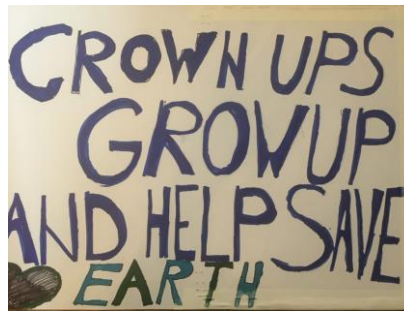 CROWN UPS
GROW UP
AND HELP SAVE
EARTH